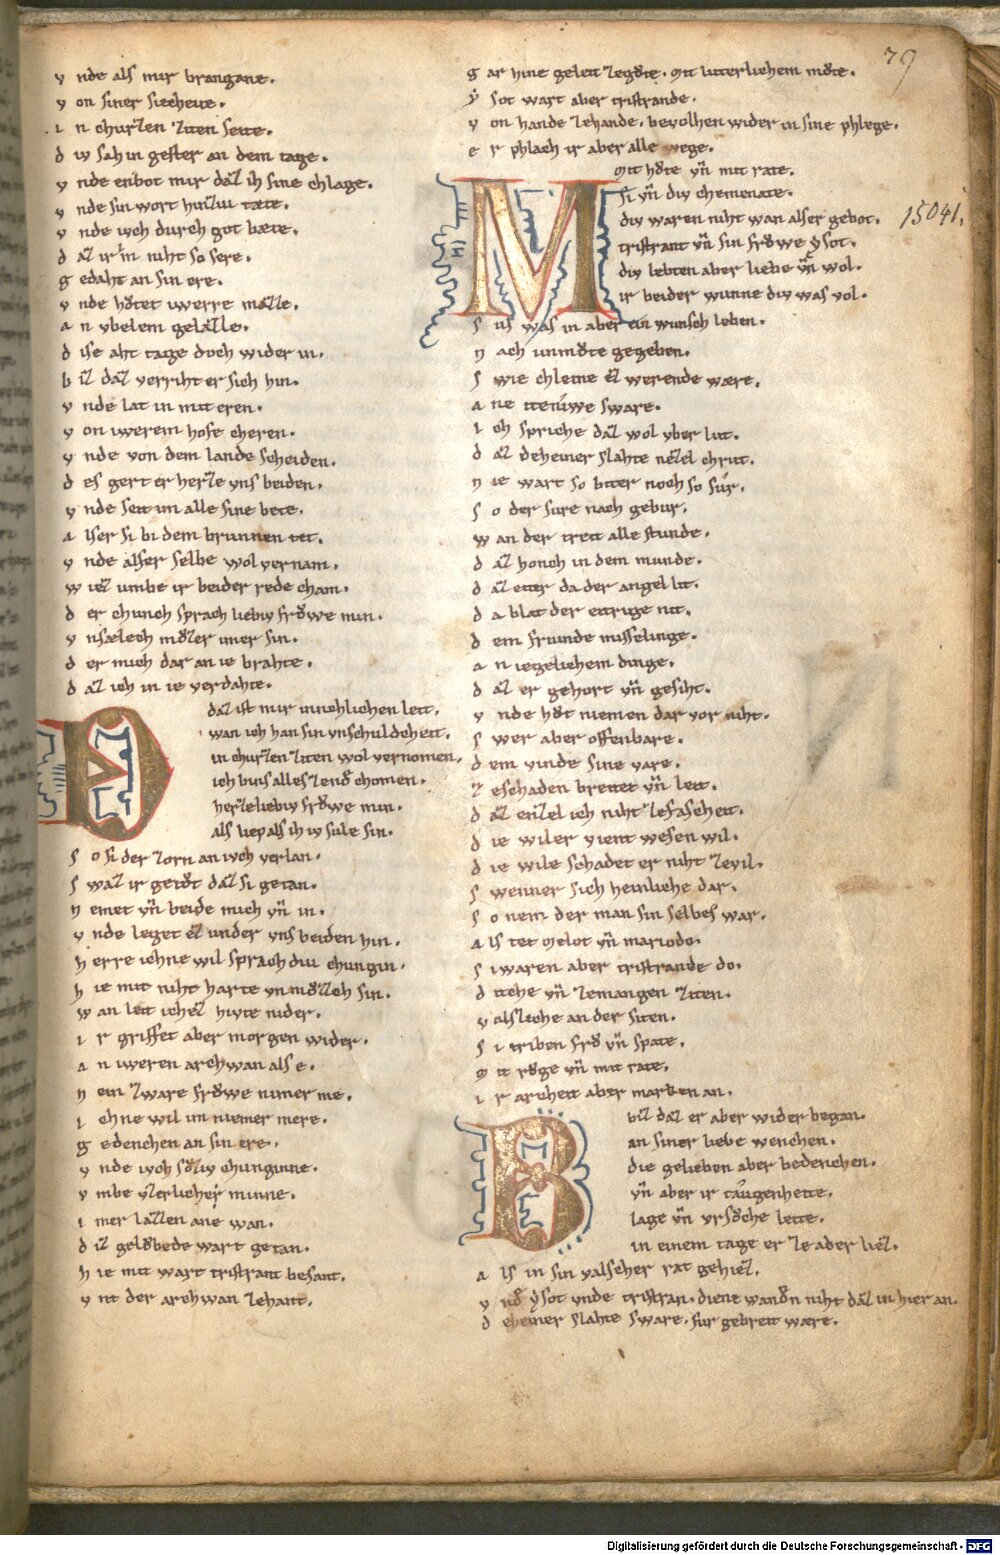 79
v nde als mir brangane.
v on siner siecheite.
i n churzen ziten seite.
d iv sah in gester an dem tage.
v nde enbot mir daz ih sine chlage.
v nde sin wort hinz iu tæte.
v nde iuch durch got bæte.
d az ir im niht so sere.
g edaht an sin ere.
v nde hůtet iuwerre mazze.
a n ubelem gelazze.
d ise aht tage doch wider in.
b iz daz verriht er sich hin.
v nde lat in mit eren.
v on iuwerem hofe cheren.
v nde von dem lande scheiden.
d es gert er herze uns beiden.
v nde seit im alle sine bete.
a lser si bi dem brunnen tet.
v nde alser selbe wol vernam.
w iez umbe ir beider rede cham.
d er chunch sprach liebiv frŏwe min.
v nsælech mŏzer imer sin.
d er mich dar an ie brahte.
d az ich in ie verdahte.
D az ist mir innechlichen leit.
wan ich han sin unschuldeheit.
in churzen ziten wol vernomen.
ich bins alles zende chomen.
herzeliebiv frŏwe min.
als liep als ih iv sule sin.
s o si der zorn an iuch verlan.
s waz ir getŏt daz si getan.
n emet vn̄ beide mich vn̄ in.
v nde leget ez under uns beiden hin.
h erre ichne wil sprach diu chungin.
h ie mit niht harte unmŏzech sin.
w an leit ichez hivte nider.
i r griffet aber morgen wider.
a n iuweren archwan als e.
n ein zware frŏwe nimer me.
i chne wil im niemer mere.
g edenchen an sin ere.
v nde iuch sŏziv chunginne.
v mbe uzerlicher minne.
i mer lazzen ane wan.
d iz gelŏbede wart getan.
h ie mit wart tristrant besant.
v nt der archwan zehant.
g ar hine geleit zegŏte. mit luterlichem mŏte.
ẏ sot wart aber tristrande.
v on hande zehande. bevolhen wider in sine phlege.
e r phlach ir aber alle wege.
M it hŏte vn̄ mit rate.
si vn̄ div chemenate.
div waren niht wan alser gebot.
15041.
tristrant vn̄ sin frŏwe ẏsot.
div lebten aber liebe vn̄ wol.
ir beider wunne div was vol.
s us was in aber ein wunsch leben.
n ach unmŏte gegeben.
s wie chleine ez werende wære.
a ne iteniuwe sware.
i ch spriche daz wol uber lut.
d az deheiner slahte nezzel chrut.
n ie wart so bitter noch so sûr.
s o der sure nach gebur.
w an der treit alle stunde.
d az honch in dem munde.
d az eiter da der angel lit.
d a blat der eitrige nit.
d em friunde misselinge.
a n iegelichem dinge.
d az er gehort vn̄ gesiht.
v nde hŏt niemen dar vor niht.
s wer aber offenbare.
d em vinde sine vare.
z eschaden breitet vn̄ leit.
d az enzel ich niht zefascheit.
d ie wil er vient wesen wil.
d ie wile schadet er niht zevil.
s wenner sich heinliche dar.
s o nem der man sin selbes war.
a ls tet melot vn̄ mariodo.
s i waren aber tristrande do.
d iche vn̄ zemangen ziten.
v alsliche an der siten.
s i triben frŏ vn̄ spate.
m it rŏge vn̄ mit rate.
i r archeit aber marken an.
B iz daz er aber wider began.
an siner liebe wenchen.
die gelieben aber bedenchen.
vn̄ aber ir taugenheite.
lage vn̄ ursŏche leite.
in einem tage er ze ader liez.
a ls in sin valscher rat gehiez.
v nd ẏsot unde tristran. diene wanden niht daz in hier an.
d eheiner slahte sware. fur gebreit wære.
Digitalisierung gefördert durch die Deutsche Forschungsgemeinschaft - DFG